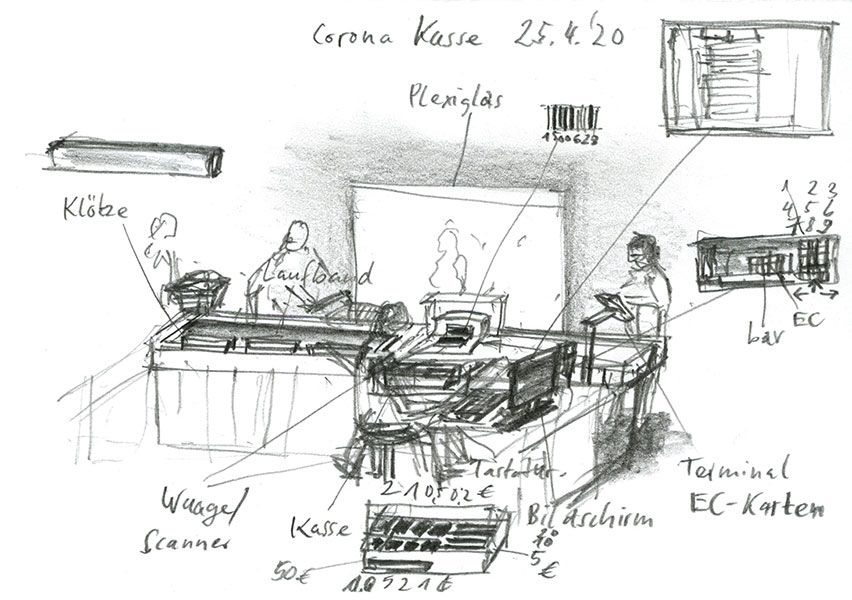 Corona Kasse 25.4.'20
Plexiglas
1500628
Klötze
Laufband
1 2 3
4 5 6
8 9
bar
EC
Waage/
Scanner
Kasse
Tastatur
Bildschirm
Terminal
EC-Karten
2 1 0,5 0,2 €
50€
5
€
5 2 1 €